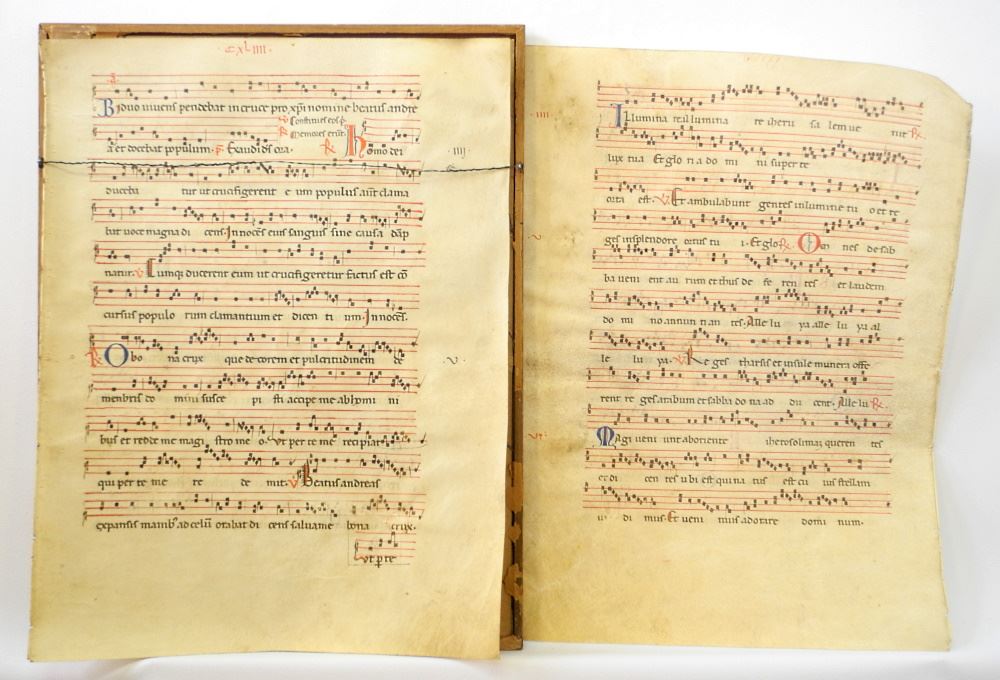 CXLIIII
Biduo vivens pendebat in cruce pro xpi nomine beatus andre
℣ Constitues eos p̄.
℟ Memores erūt.
a et docebat populum. p̄ Exaudi ds ora. ℟ Homo dei
IIII
duceba tur ut crucifigerent e um populus aūt clama
bat voce magna di cens. Innocens eius sanguis sine causa dāp
natur. ℣ Cumq; ducerent eum ut crucifigeretur factus est cō
cursus populo rum clamantium et dicen ti um. Innocens.
℟ O bo na crux que decorem et pulcritudinem de
V
menbris do mini susce pi sti accipe me ab homi ni
bus et redde me magi stro me o. Ut per te me recipiat
qui per te me re de mit. ℣ Beatus andreas
expansis manib; ad celū orabat di cens salva me bona crux.
Ut p te
IIII
Illumina re illumina re iheru sa lem ve nit ℟
lux tua Et glo ri a do mi ni super te
orta est. ℣ Et ambulabunt gentes in lumine tu o et re
V
ges in splendore ortus tu i. Et glo ℟ Om nes de sab
ba veni ent au rum et thus de fe ren tes et laudem
do mi no annun tian tes. Alle lu ya alle lu ya al
le lu ya. ℣ Re ges tharsis et insule munera offe
rent re ges arabum et sabba do na ad du cent. Alle lu ℟
VI
Magi veni unt ab oriente iherosolimaz queren tes
et di cen tes ubi est qui na tus est cu ius stellam
vi di mus. Et veni mus adorare domi num.